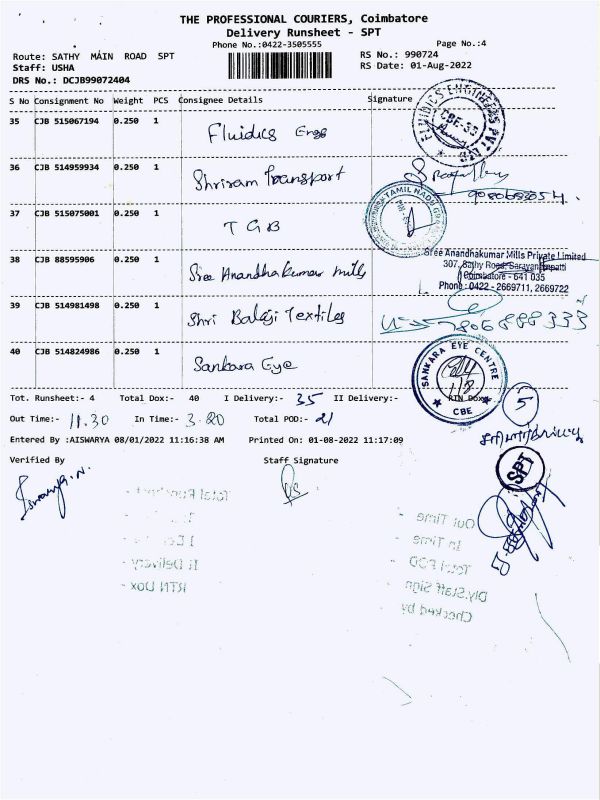 THE PROFESSIONAL COURIERS, Coimbatore
Delivery Runsheet - SPT
Phone No.:0422-3505555 Page No.:4
Route: SATHY MAIN ROAD SPT RS No.: 990724
Staff: USHA RS Date: 01-Aug-2022
DRS No.: DCJB99072404
S No Consignment No Weight PCS Consignee Details Signature
35 CJB 515067194 0.250 1 Fluidics Engg
FLUIDICS ENGINEERS PVT LTD
CBE-35
36 CJB 514959934 0.250 1 Shriram Transport
9080683054.
37 CJB 515075001 0.250 1 TGB
TAMIL NADU
38 CJB 88595906 0.250 1 Sree Anandhakumar mills
Sree Anandhakumar Mills Private Limited
307, Sathy Road, Saravanampatti
Coimbatore - 641 035
Phone : 0422 - 2669711, 2669722
39 CJB 514981498 0.250 1 Shri Balaji Textiles
7806888333
40 CJB 514824986 0.250 1 Sankara Eye
SANKARA EYE CENTRE
CBE
Tot. Runsheet:- 4 Total Dox:- 40 I Delivery:- 35 II Delivery:- RTN Dox:-
5
Out Time:- 11.30 In Time:- 3.20 Total POD:- 21
Entered By :AISWARYA 08/01/2022 11:16:38 AM Printed On: 01-08-2022 11:17:09
Verified By Staff Signature
SPT
Out Time -
In Time -
Total POD -
II Delivery -
Dly.Staff Sign -
RTN Dox -
Checked by